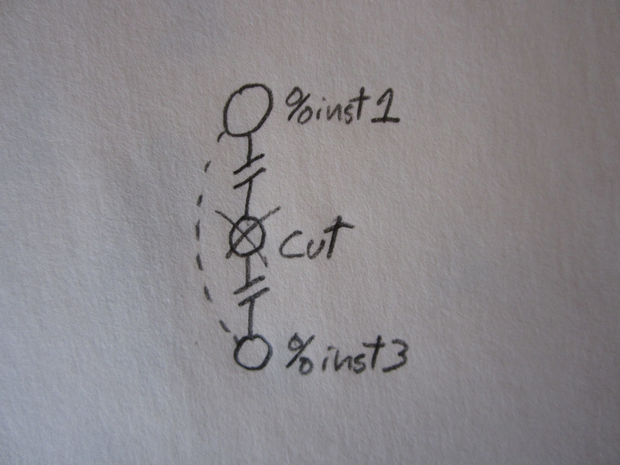 %inst1
cut
%inst3